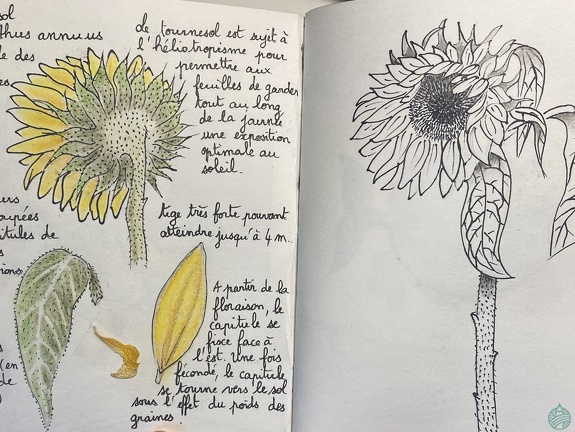 sol
thus annuus
le des
es
de tournesol est sujet à
l'héliotropisme pour
permettre aux
feuilles de garder
tout au long
de la journée
une exposition
optimale au
soleil.
tige très forte pouvant
atteindre jusqu'à 4 m.
urs
oupées
itules de
s
ions
A partir de la
floraison, le
capitule se
fixe face à
l'est. Une fois
fécondé, le capitule
se tourne vers le sol
sous l'effet du poids des
graines.
s
(en
de